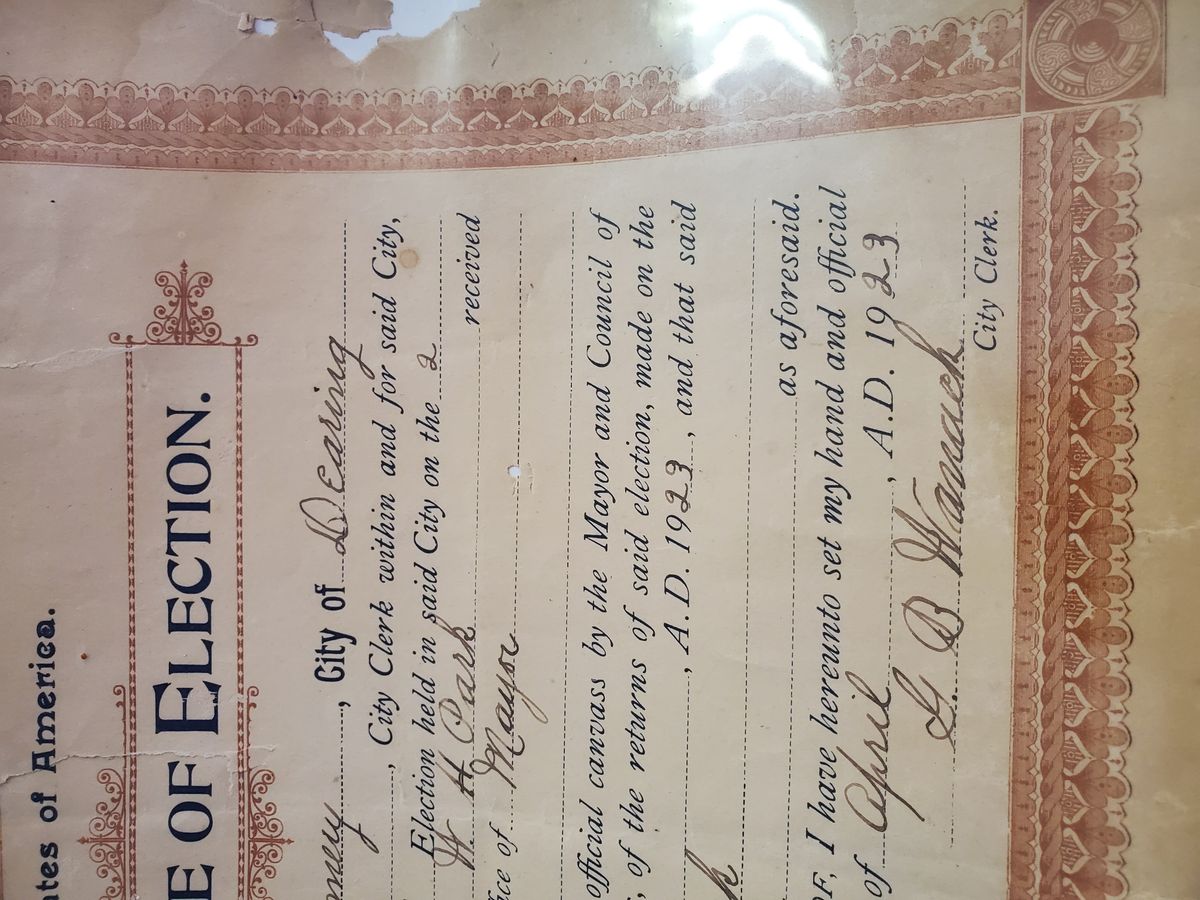 ates of America.
E OF ELECTION.
mery, City of Dearing
, City Clerk within and for said City,
Election held in said City on the 2
W. H. Park received
ice of Mayor
official canvass by the Mayor and Council of
, of the returns of said election, made on the
, A.D. 1923, and that said
k
as aforesaid.
OF, I have hereunto set my hand and official
of April, A.D. 1923
City Clerk.